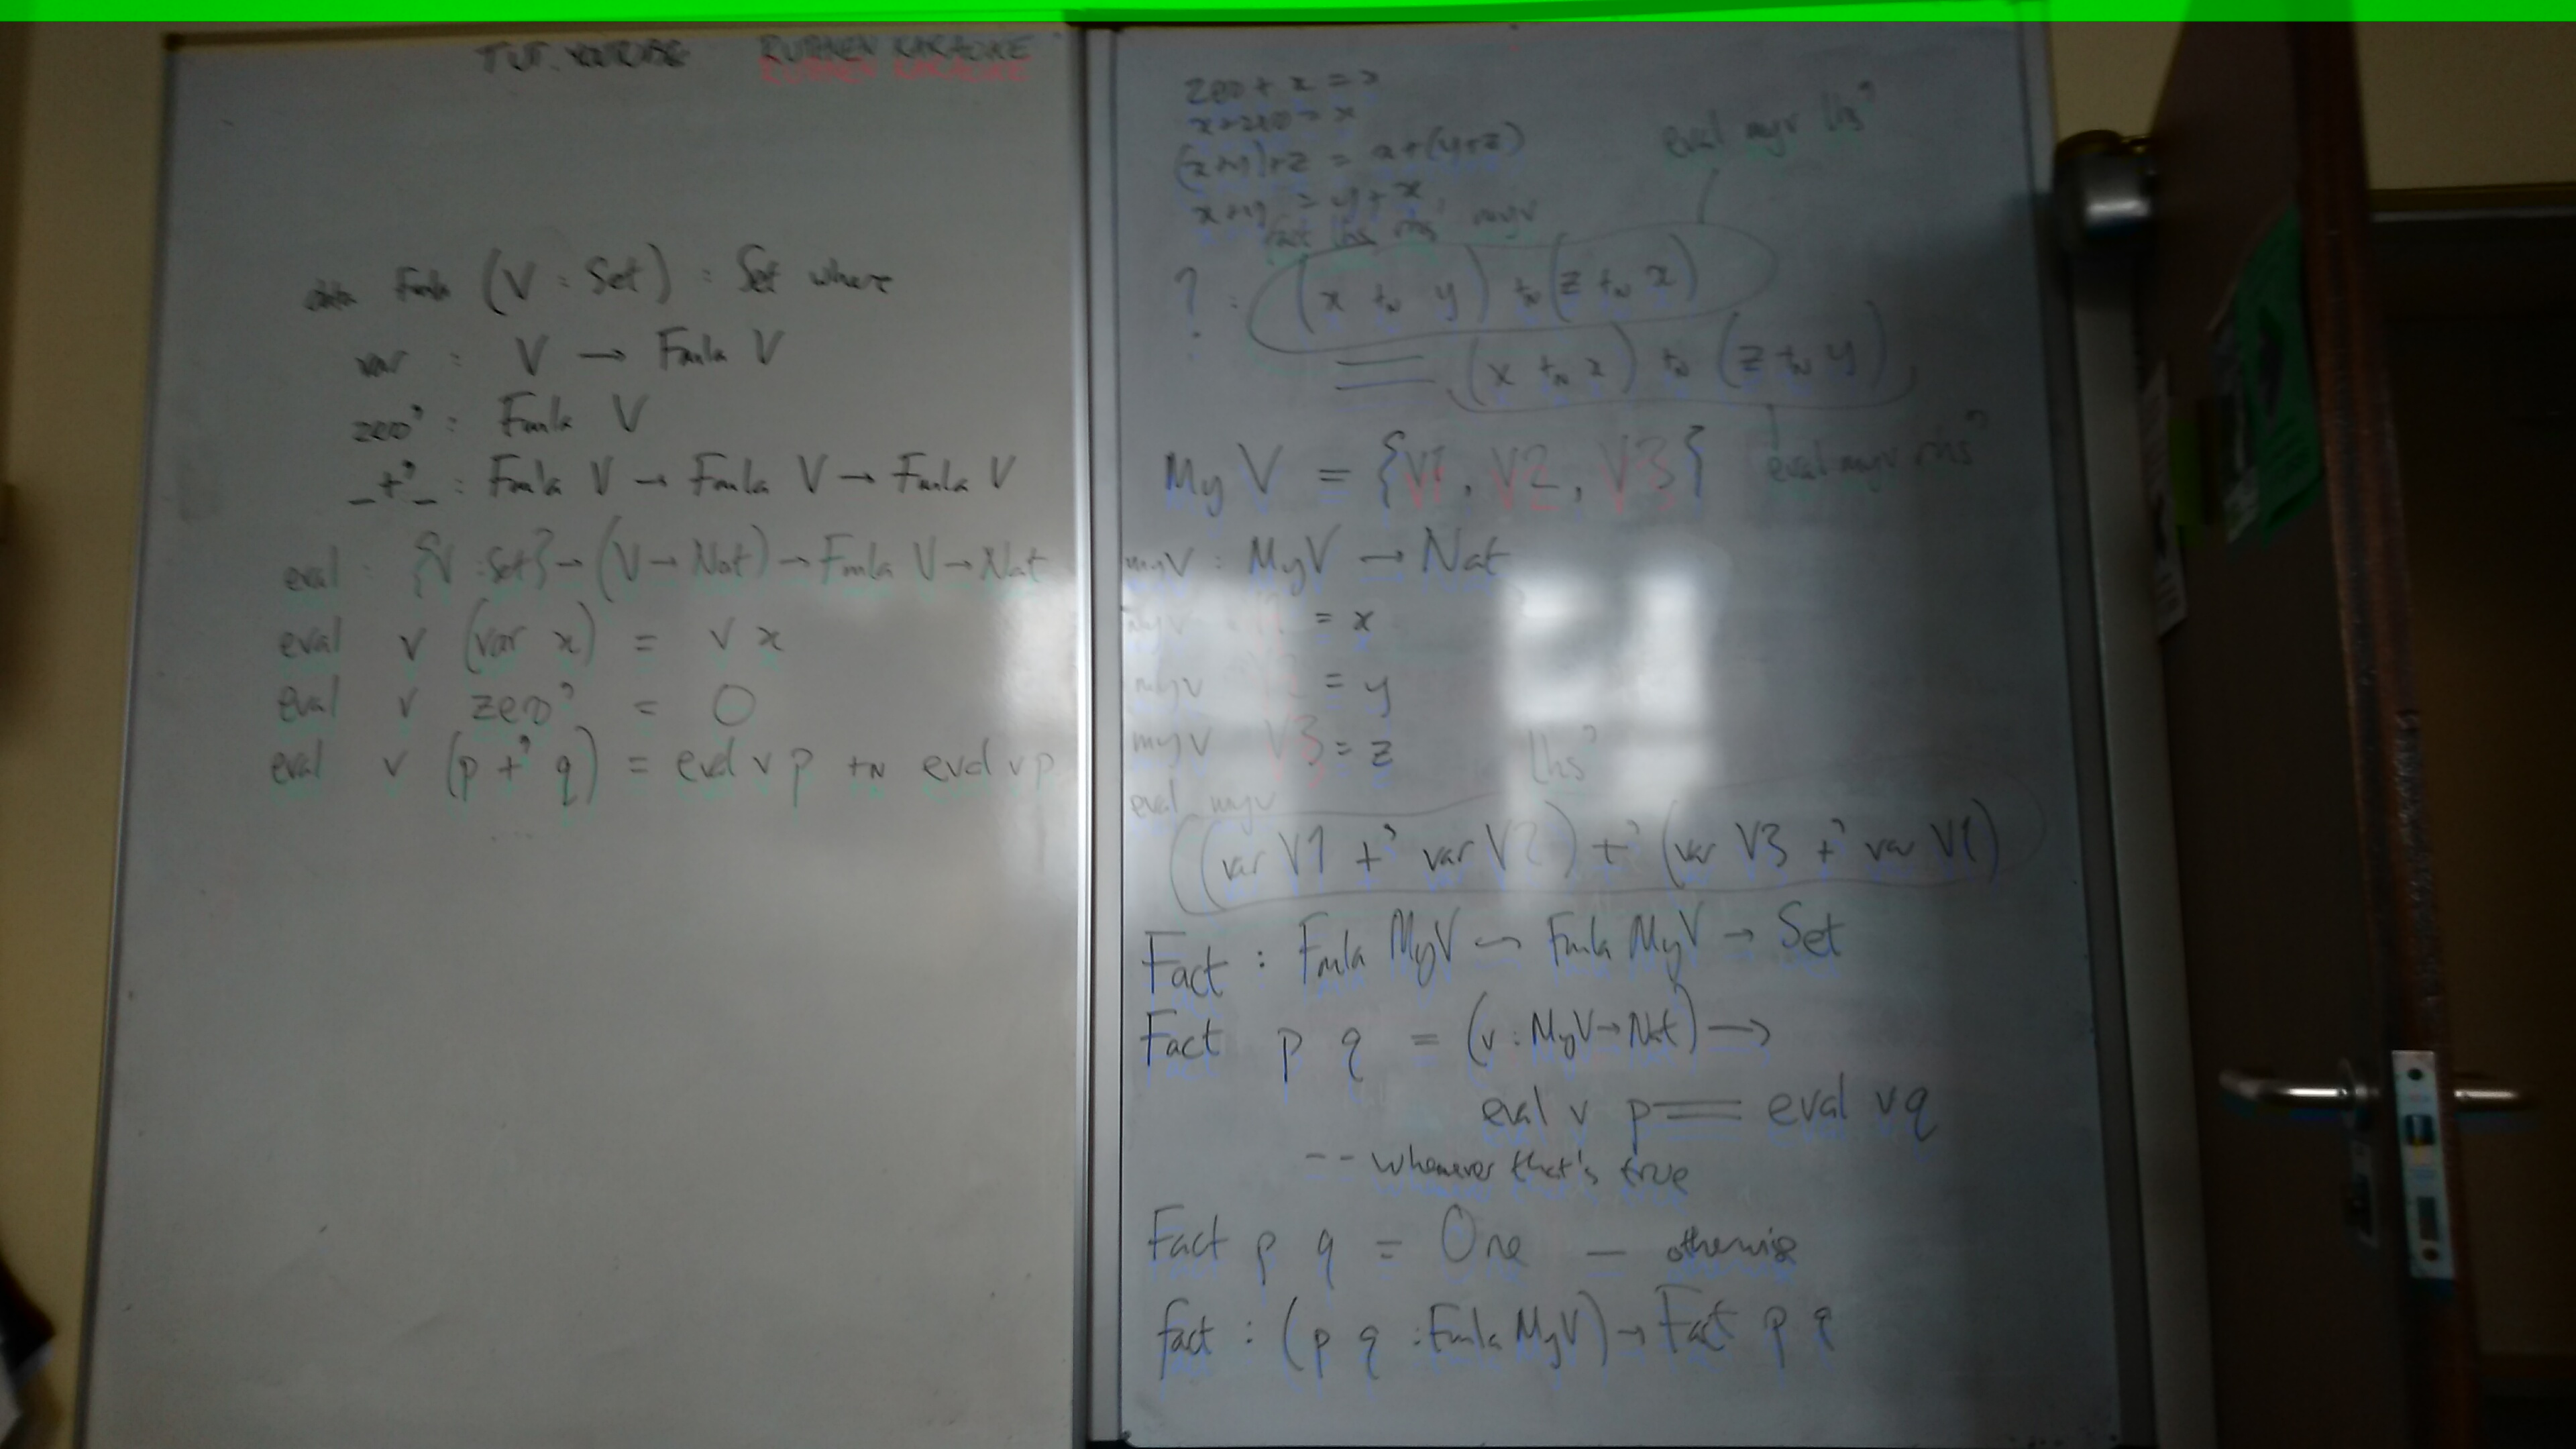 TUT. YOUTUBE RUTHNEN KARAOKE
data Fmla (V : Set) : Set where
var : V → Fmla V
zero' : Fmla V
_+'_ : Fmla V → Fmla V → Fmla V
eval : {V : Set} → (V → Nat) → Fmla V → Nat
eval v (var x) = v x
eval v zero' = 0
eval v (p +' q) = eval v p +N eval v p
zero + x = x
x + zero = x
(x+y)+z = x+(y+z)
x+y = y+x
fact lhs' rhs' myv
eval myv lhs'
? : (x +N y) +N (z +N x)
== (x +N x) +N (z +N y)
eval myv rhs'
My V = {V1, V2, V3}
myv : MyV → Nat
myv V1 = x
myv V2 = y
myv V3 = z
lhs'
eval myv
((var V1 +' var V2) +' (var V3 +' var V1)
Fact : Fmla MyV → Fmla MyV → Set
Fact p q = (v : MyV → Nat) →
eval v p == eval v q
-- whenever that's true
Fact p q = One — otherwise
fact : (p q : Fmla MyV) → Fact p q